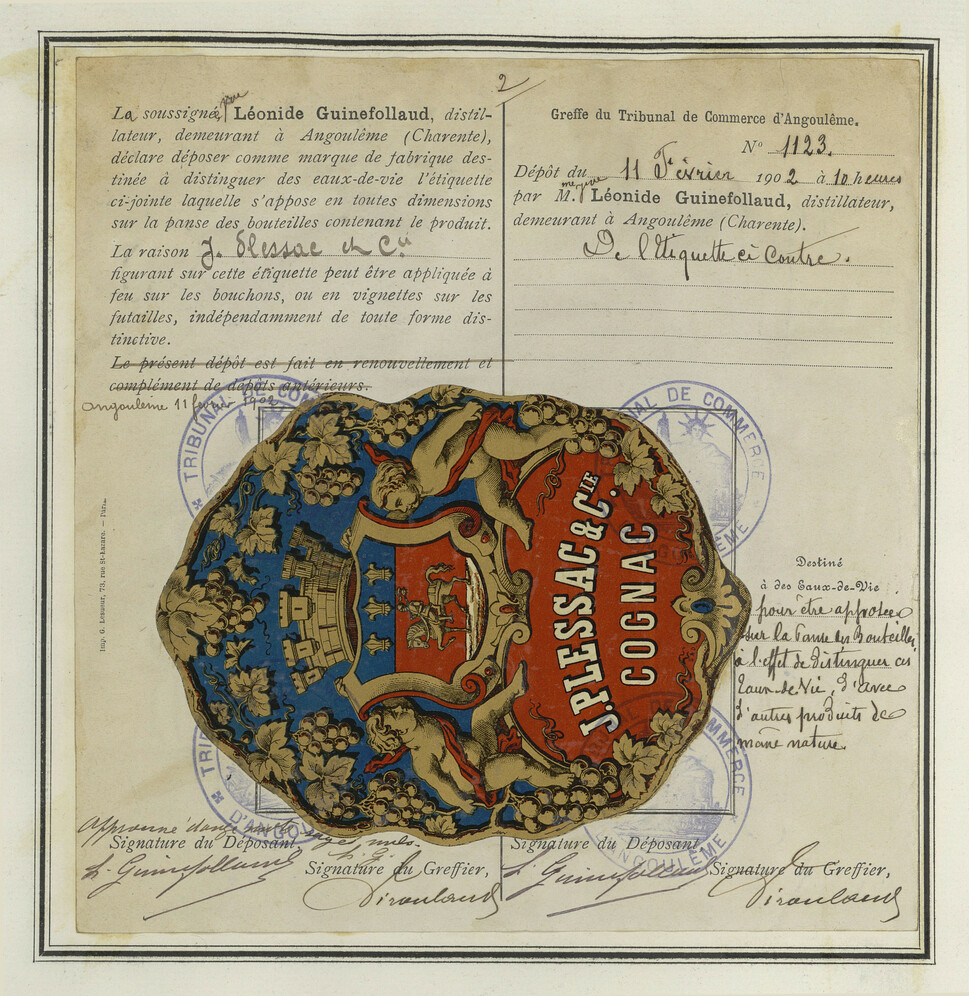 2
La soussignée, Léonide Guinefollaud, distil-
lateur, demeurant à Angoulême (Charente),
déclare déposer comme marque de fabrique des-
tinée à distinguer des eaux-de-vie l'étiquette
ci-jointe laquelle s'appose en toutes dimensions
sur la panse des bouteilles contenant le produit.
La raison J. Plessac et Cie
figurant sur cette étiquette peut être appliquée à
feu sur les bouchons, ou en vignettes sur les
futailles, indépendamment de toute forme dis-
tinctive.
Le présent dépôt est fait en renouvellement et
complément de dépôts antérieurs.
Angoulême 11 février 1902
Greffe du Tribunal de Commerce d'Angoulême.
N° 1123.
Dépôt du 11 Février 1902 à 10 heures
par M. Léonide Guinefollaud, distillateur,
demeurant à Angoulême (Charente).
De l'Etiquette ci Contre.
TRIBUNAL DE COMMERCE
TRIBUNAL DE COMMERCE
D'ANGOULÊME
ANGOULÊME
J. PLESSAC & CIE.
COGNAC
Imp. G. Lesueur, 73, rue St-Lazare. — Paris.
Destiné
à des Eaux-de-Vie
pour être apposée
sur la Panse des Bouteilles
à l'effet de Distinguer ces
Eaux-de-Vie, d'avec
d'autres produits de
même nature.
Signature du Déposant
L. Guinefollaud
Signature du Greffier,
Signature du Déposant
L. Guinefollaud
Signature du Greffier,